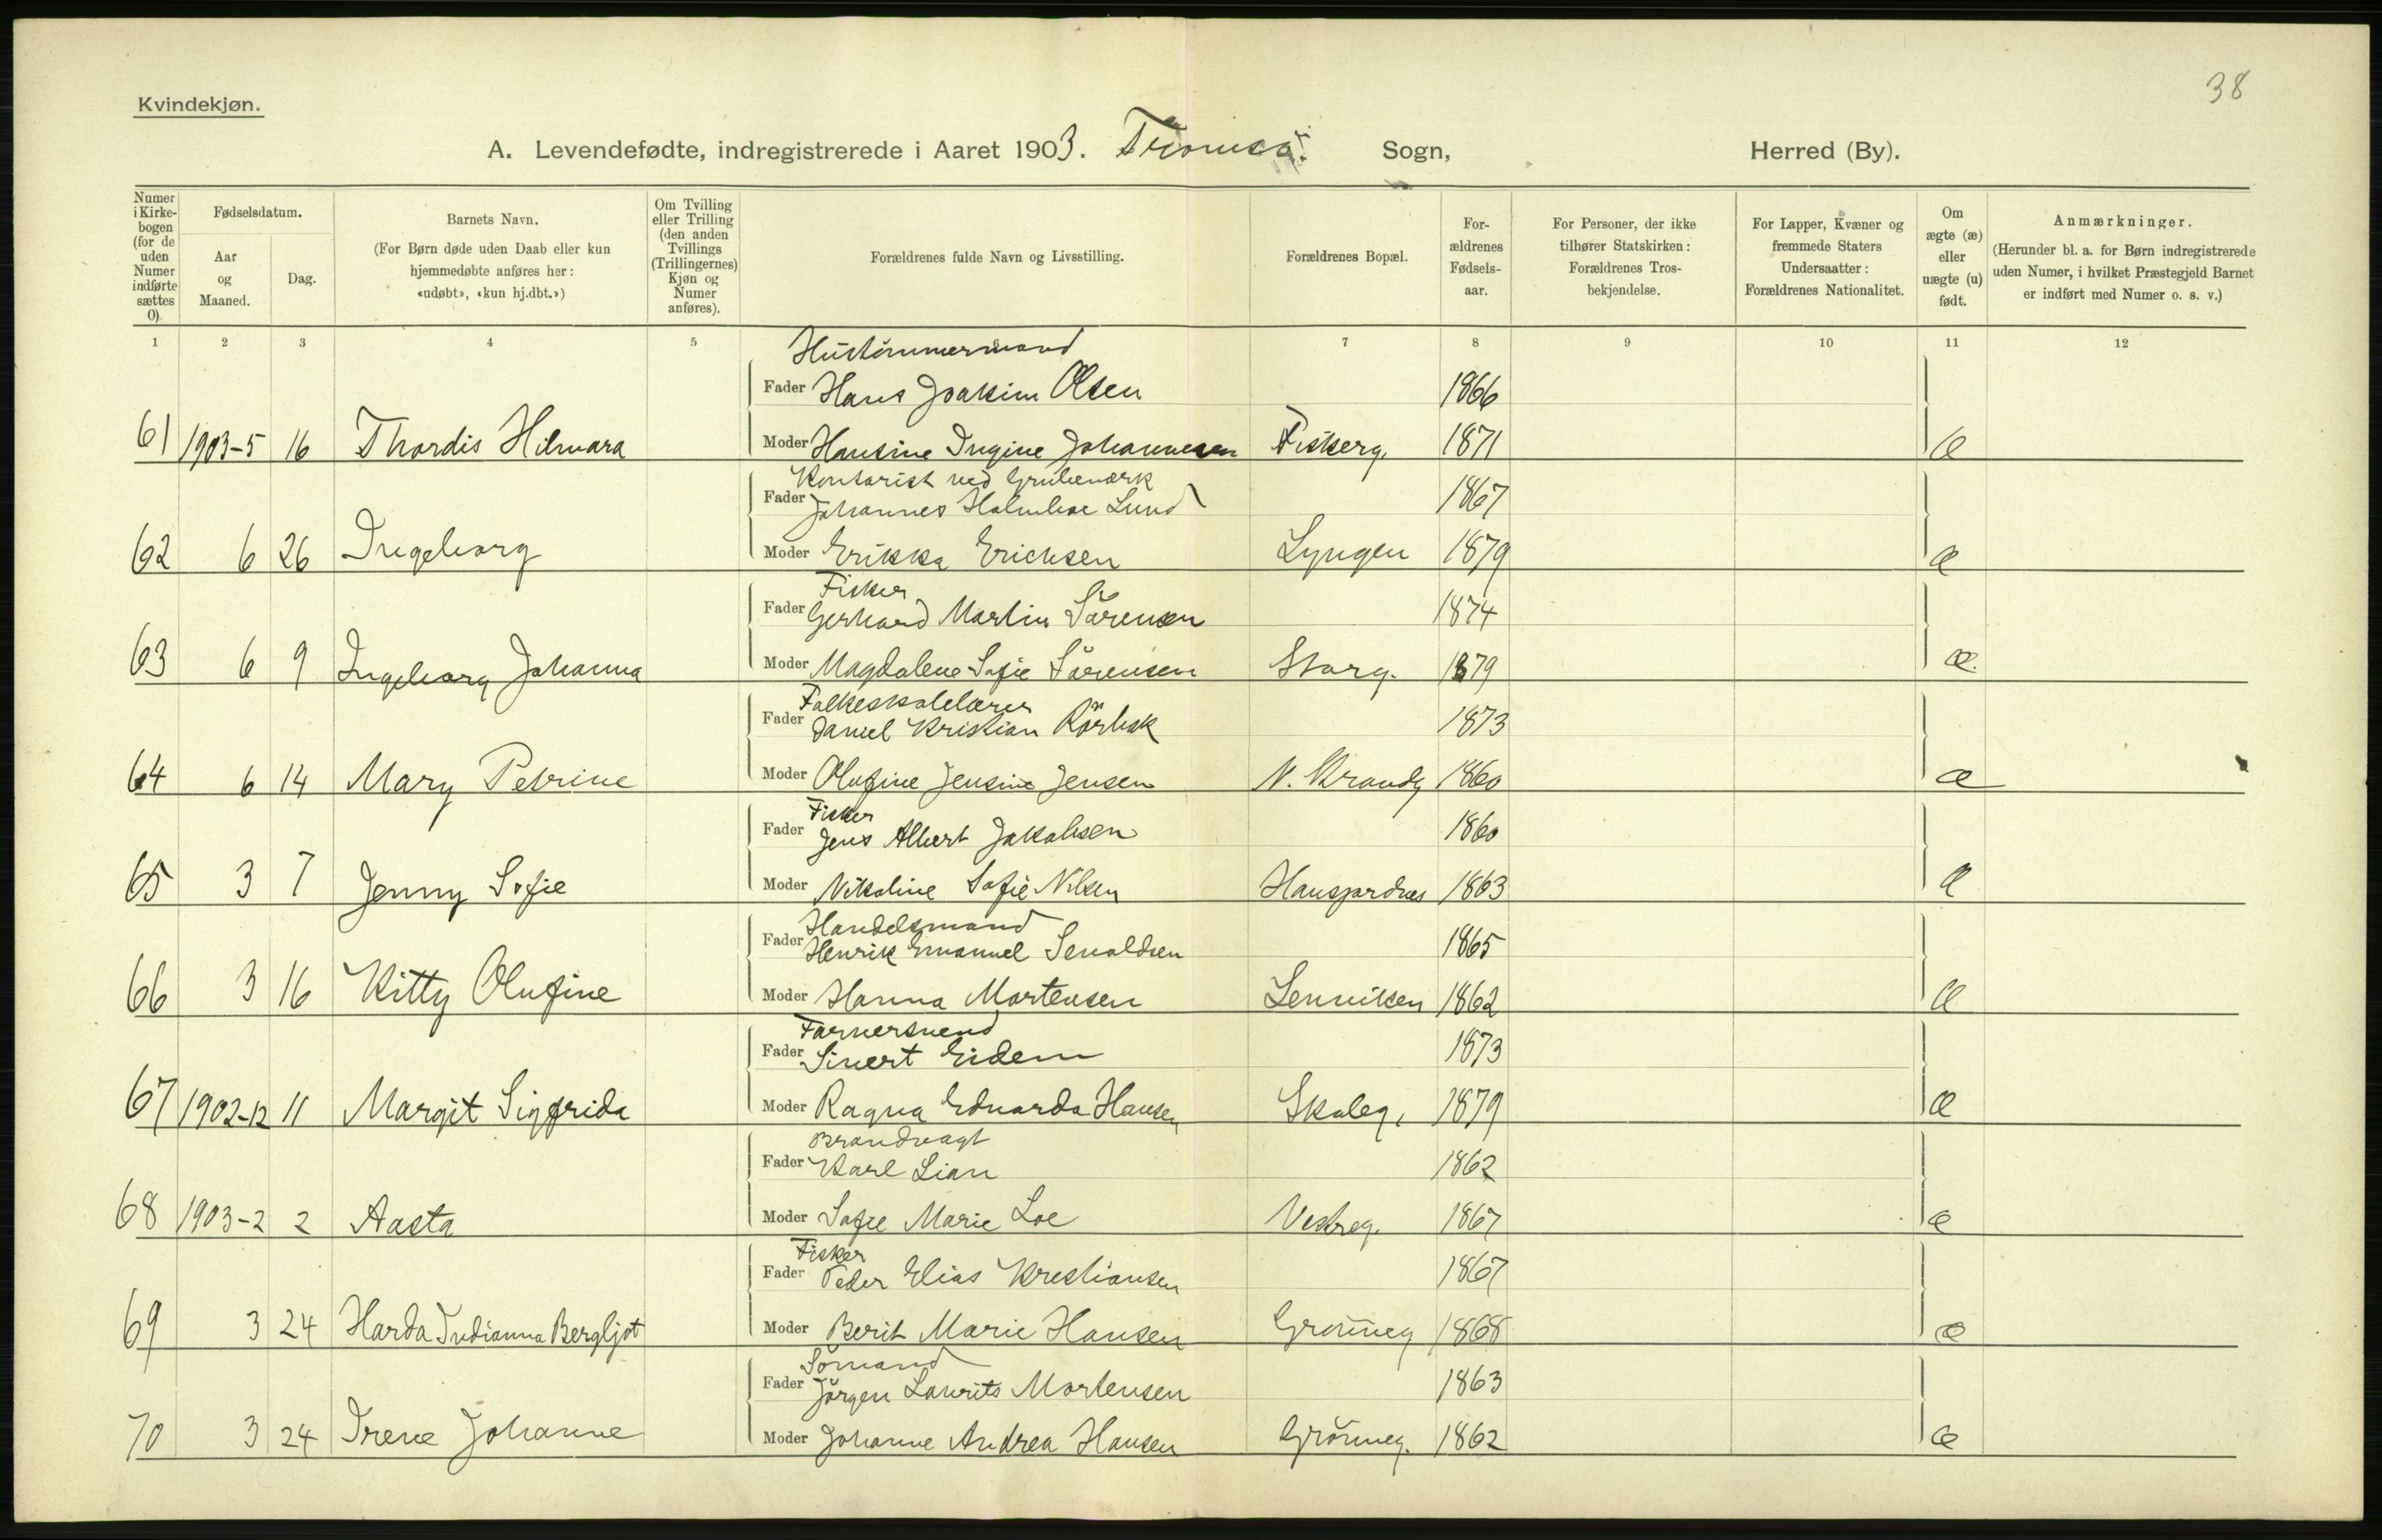 38
Kvindekjøn.
A. Levendefødte, indregistrerede i Aaret 1903. Tromsø. Sogn, Herred (By).
Numer i Kirkebogen (for de uden Numer indførte sættes 0).
Fødselsdatum.
Aar og Maaned.
Dag.
Barnets Navn.
(For Børn døde uden Daab eller kun hjemmedøbte anføres her: «udøbt», «kun hj.dbt.»)
Om Tvilling eller Trilling (den anden Tvillings (Trillingernes) Kjøn og Numer anføres).
Forældrenes fulde Navn og Livsstilling.
Forældrenes Bopæl.
Forældrenes Fødselsaar.
For Personer, der ikke tilhører Statskirken: Forældrenes Trosbekjendelse.
For Lapper, Kvæner og fremmede Staters Undersaatter: Forældrenes Nationalitet.
Om ægte (æ) eller uægte (u) født.
Anmærkninger.
(Herunder bl. a. for Børn indregistrerede uden Numer, i hvilket Præstegjeld Barnet er indført med Numer o. s. v.)
1 2 3 4 5 7 8 9 10 11 12
Hustömmermand
Fader Hans Joakim Olsen 1866
61 1903-5 16 Thordis Hilmara Moder Hansine Ingine Johannesen Fiskerg. 1871 Æ
Kontorist ved Grubeværk
Fader Johannes Holmboe Lund 1867
62 6 26 Ingeborg Moder Erikka Erichsen Lyngen 1879 æ
Fisker
Fader Gerhard Martin Sörensen 1874
63 6 9 Ingeborg Johanna Moder Magdalene Sofie Sörensen Storg. 1879 æ.
Folkeskolelærer
Fader Daniel Kristian Rörbak 1873
64 6 14 Mary Petrine Moder Olufine Jensine Jensen N. Strandg 1860 æ
Fisker
Fader Jens Albert Jakobsen 1860
65 3 7 Jenny Sofie Moder Nikoline Sofie Nilsen Hansjordnes 1863 æ
Handelsmand
Fader Henrik Emanuel Sevaldsen 1865
66 3 16 Kitty Olufine Moder Hanna Mortensen Lenviken 1862 Æ
Farversvend
Fader Sivert Eidem 1873
67 1902-12 11 Margit Sigfrida Moder Ragna Edvarda Hansen Skoleg. 1879 æ
Brandvagt
Fader Karl Lian 1862
68 1903-2 2 Aasta Moder Sofie Marie Loe Vestreg. 1867 æ
Fisker
Fader Peder Elias Kristiansen 1867
69 3 24 Harda Indianna Bergljot Moder Berit Marie Hansen Grönneg 1868 æ
Sömand
Fader Jörgen Laurits Mortensen 1863
70 3 24 Irene Johanne Moder Johanne Andrea Hansen Grönneg. 1862 æ